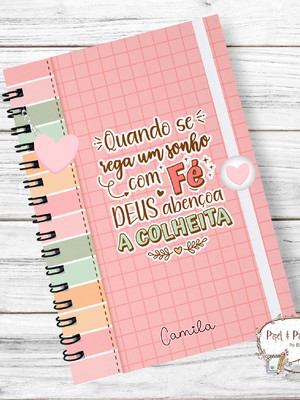 Quando se
rega um sonho
com Fé
DEUS abençoa
A COLHEITA
Camila